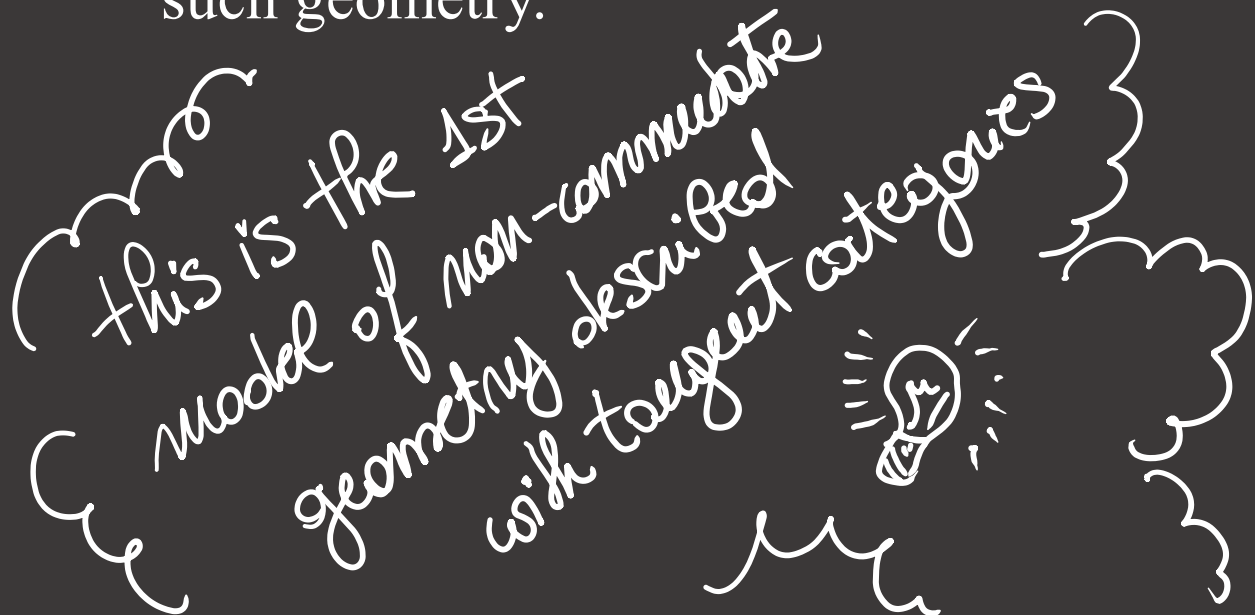 such geometry.
this is the 1st
model of non-commutative
geometry described
with tangent categories